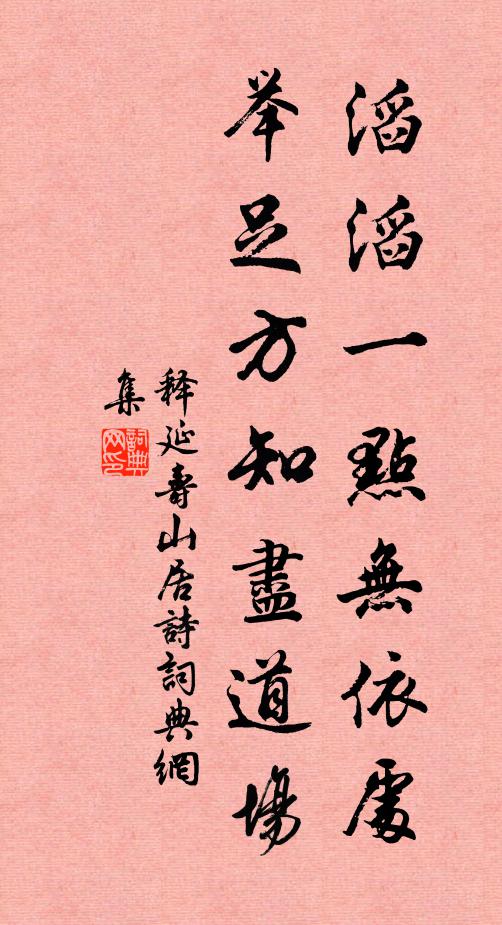 滔滔一點無依處
举足方知盡道場
释延壽山居詩詞典網
集
詞典網印